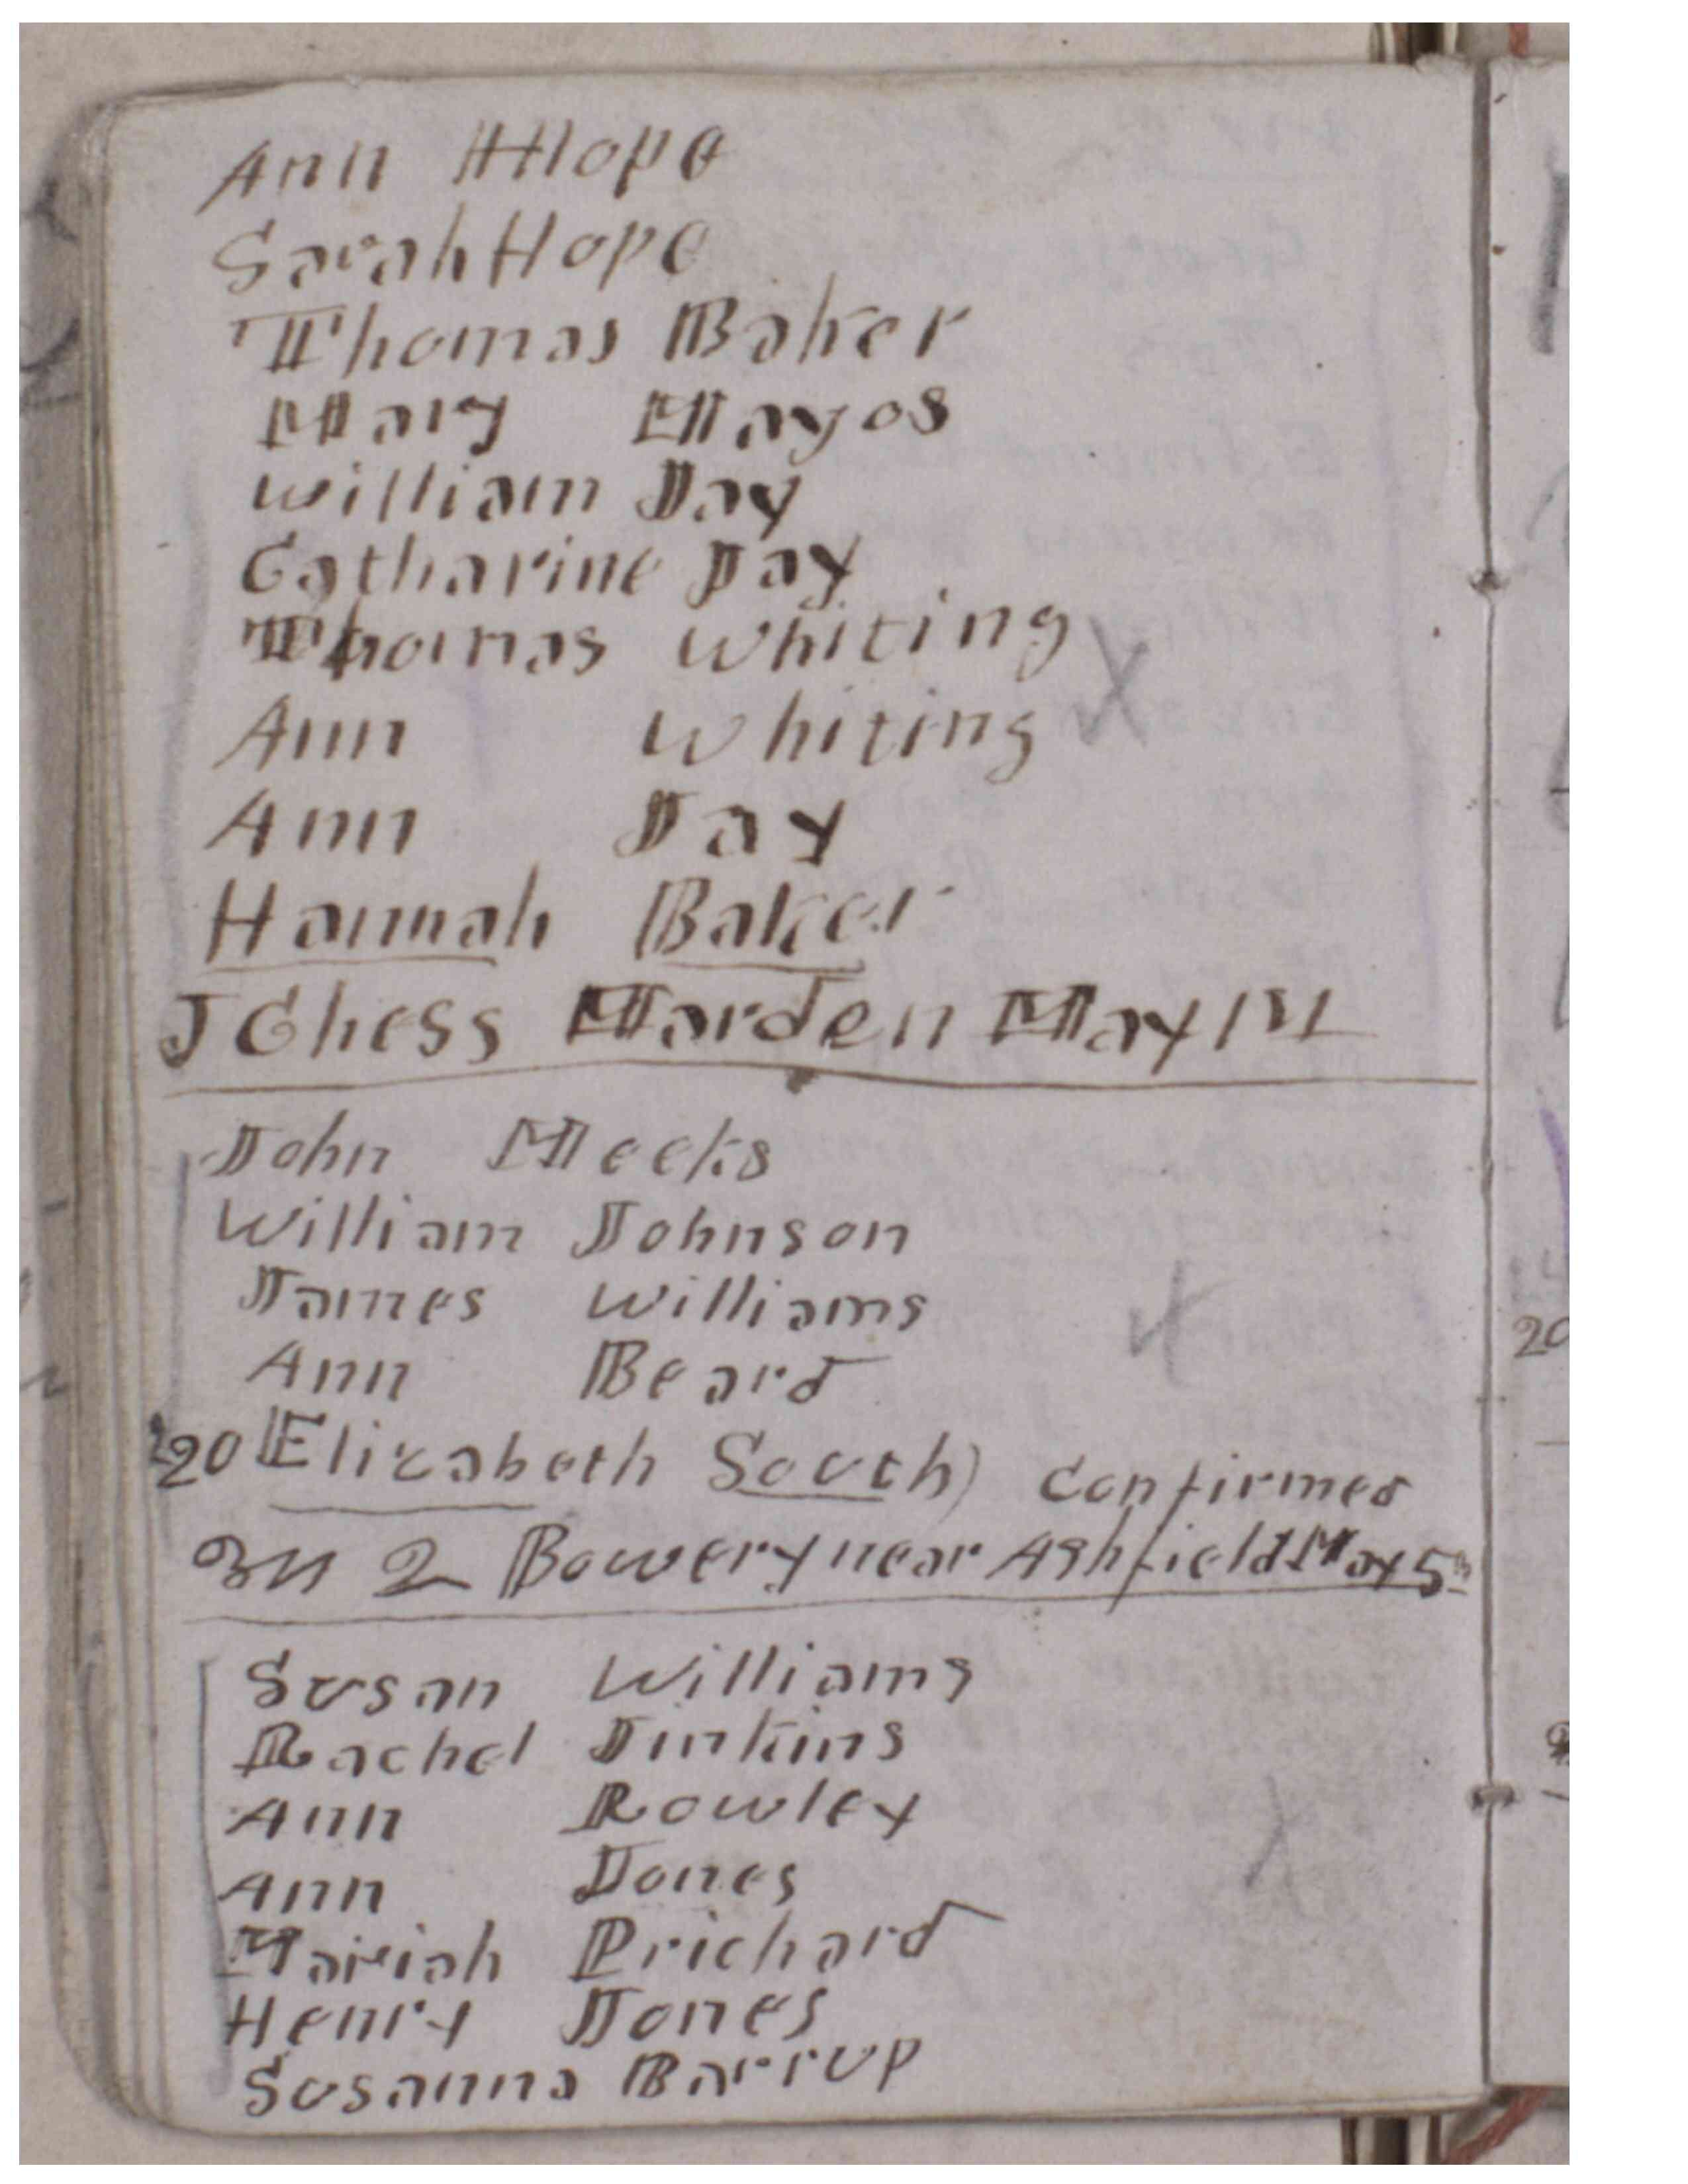 Ann Hope
Sarah Hope
Thomas Baker
Mary Mayos
William Jay
Catharine Jay
Thomas Whiting
Ann Whiting
Ann Jay
Hannah Baker
J Chess Marden May 1st
John Meeks
William Johnson
James Williams
Ann Beard
20 Elizabeth South) Confirmed
2 Bowery near Ashfield May 5th
Susan Williams
Rachel Jinkins
Ann Rowley
Ann Jones
Mariah Prichard
Henry Jones
Susanna Barrup
20